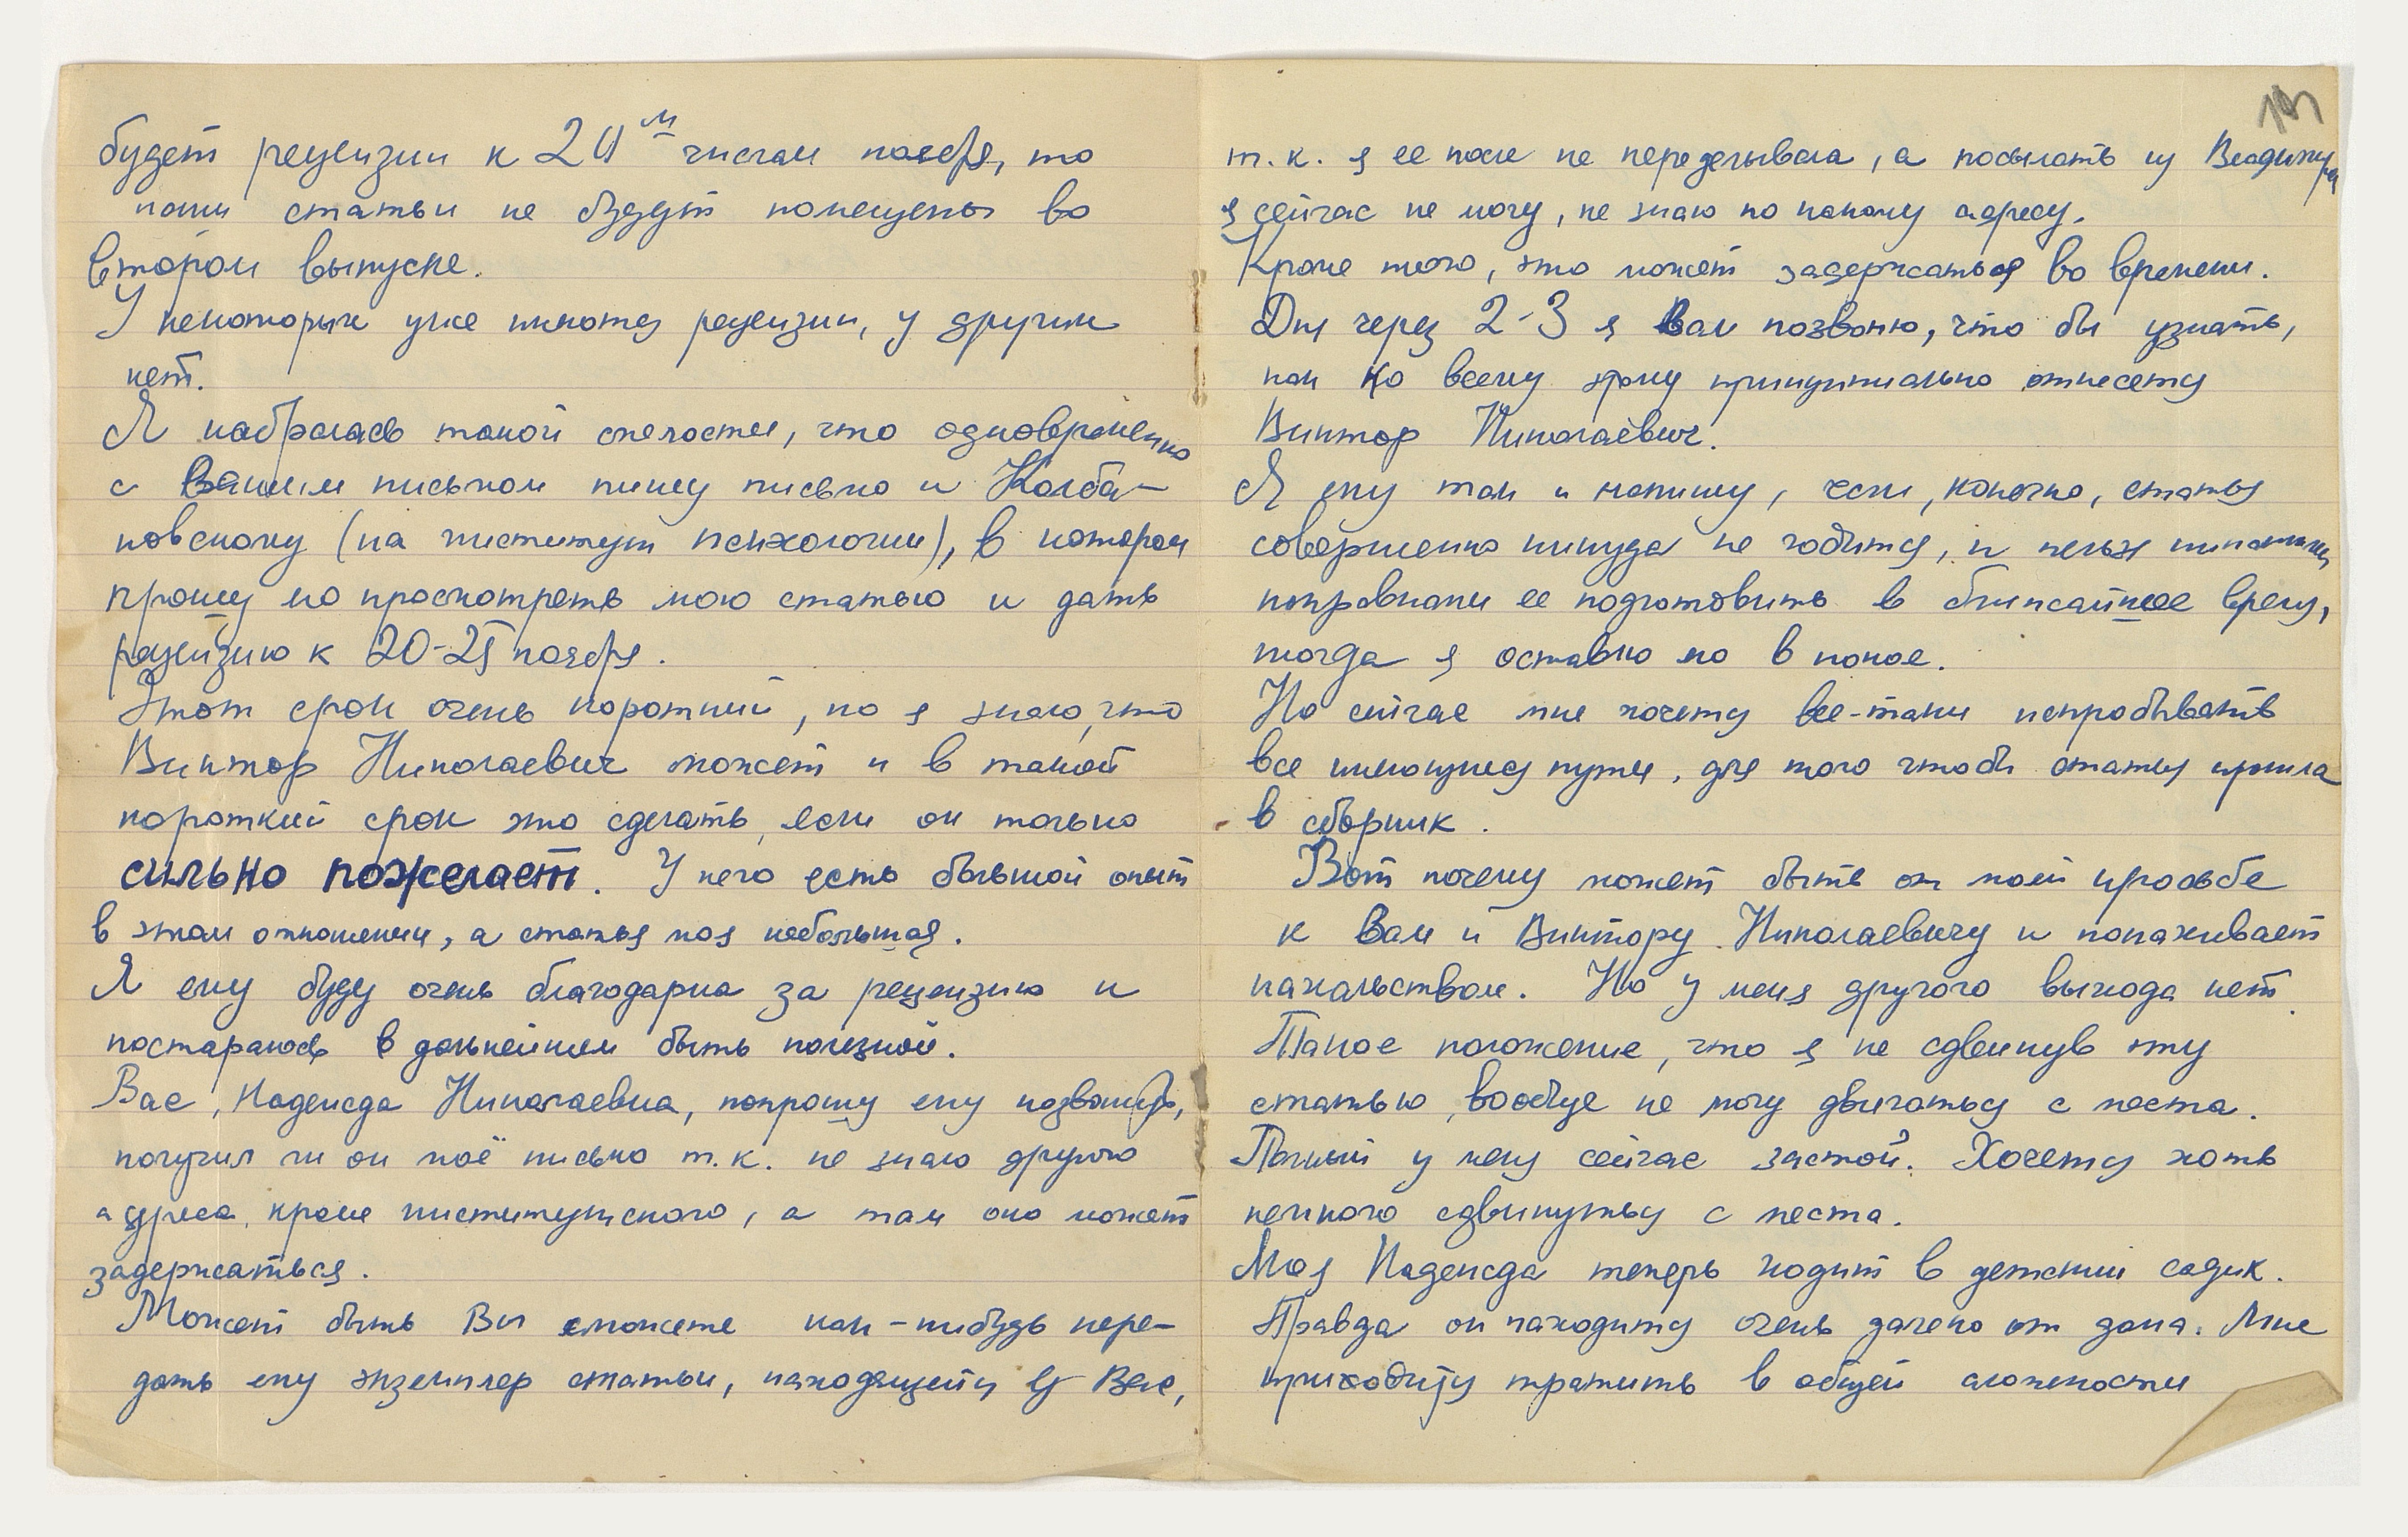 будет рецензии к 20м числам ноября, то
наши статьи не будут помещены во
втором выпуске.
У некоторых уже имеются рецензии, у других
нет.
Я набралась такой смелости, что одновременно
с Вашим письмом пишу письмо и Колба-
новскому (на институт психологии), в котором
прошу его просмотреть мою статью и дать
рецензию к 20-25 ноября.
Этот срок очень короткий, но я знаю, что
Виктор Николаевич может и в такой
короткий срок это сделать, если он только
сильно пожелает. У него есть большой опыт
в этом отношении, а статья моя небольшая.
Я ему буду очень благодарна за рецензию и
постараюсь в дальнейшем быть полезной.
Вас, Надежда Николаевна, попрошу ему позвонить,
получил ли он моё письмо т.к. не знаю другого
адреса, кроме институтского, а там оно может
задержаться.
Может быть Вы сможете как-нибудь пере-
дать ему экземпляр статьи, находящейся у Вас,
т.к. я ее после не переделывала, а посылать из Владимира
я сейчас не могу, не знаю по какому адресу.
Кроме того, это может задержаться во времени.
Дня через 2-3 я Вам позвоню, что бы узнать,
как ко всему этому принципиально отнесется
Виктор Николаевич.
Я ему так и напишу, если, конечно, статья
совершенно никуда не годится, и нельзя никакими
поправками ее подготовить в ближайшее время,
тогда я оставлю его в покое.
Но сейчас мне хочется все-таки испробывать
все имеющиеся пути, для того чтобы статья прошла
в сборник.
Вот почему может быть от моей просьбе
к Вам и Виктору Николаевичу и попахивает
нахальством. Но у меня другого выхода нет.
Такое положение, что я не сдвинув эту
статью, вообще не могу двигаться с места.
Полный у меня сейчас застой. Хочется хоть
немного сдвинуться с места.
Моя Надежда теперь ходит в детский садик.
Правда он находится очень далеко от дома. Мне
приходится тратить в общей сложности